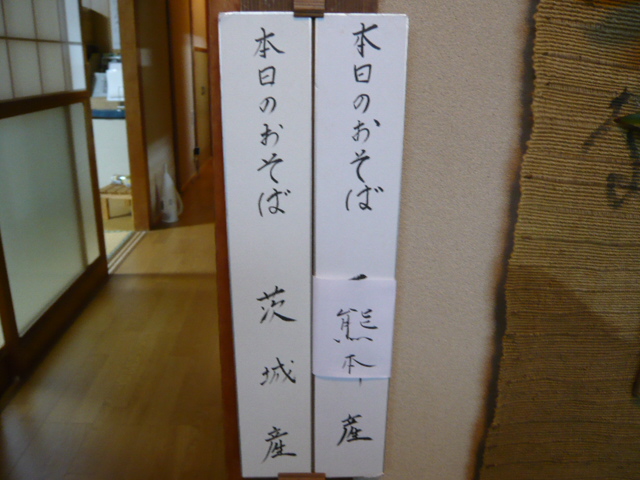 本日のおそば 熊本産
本日のおそば 茨城産